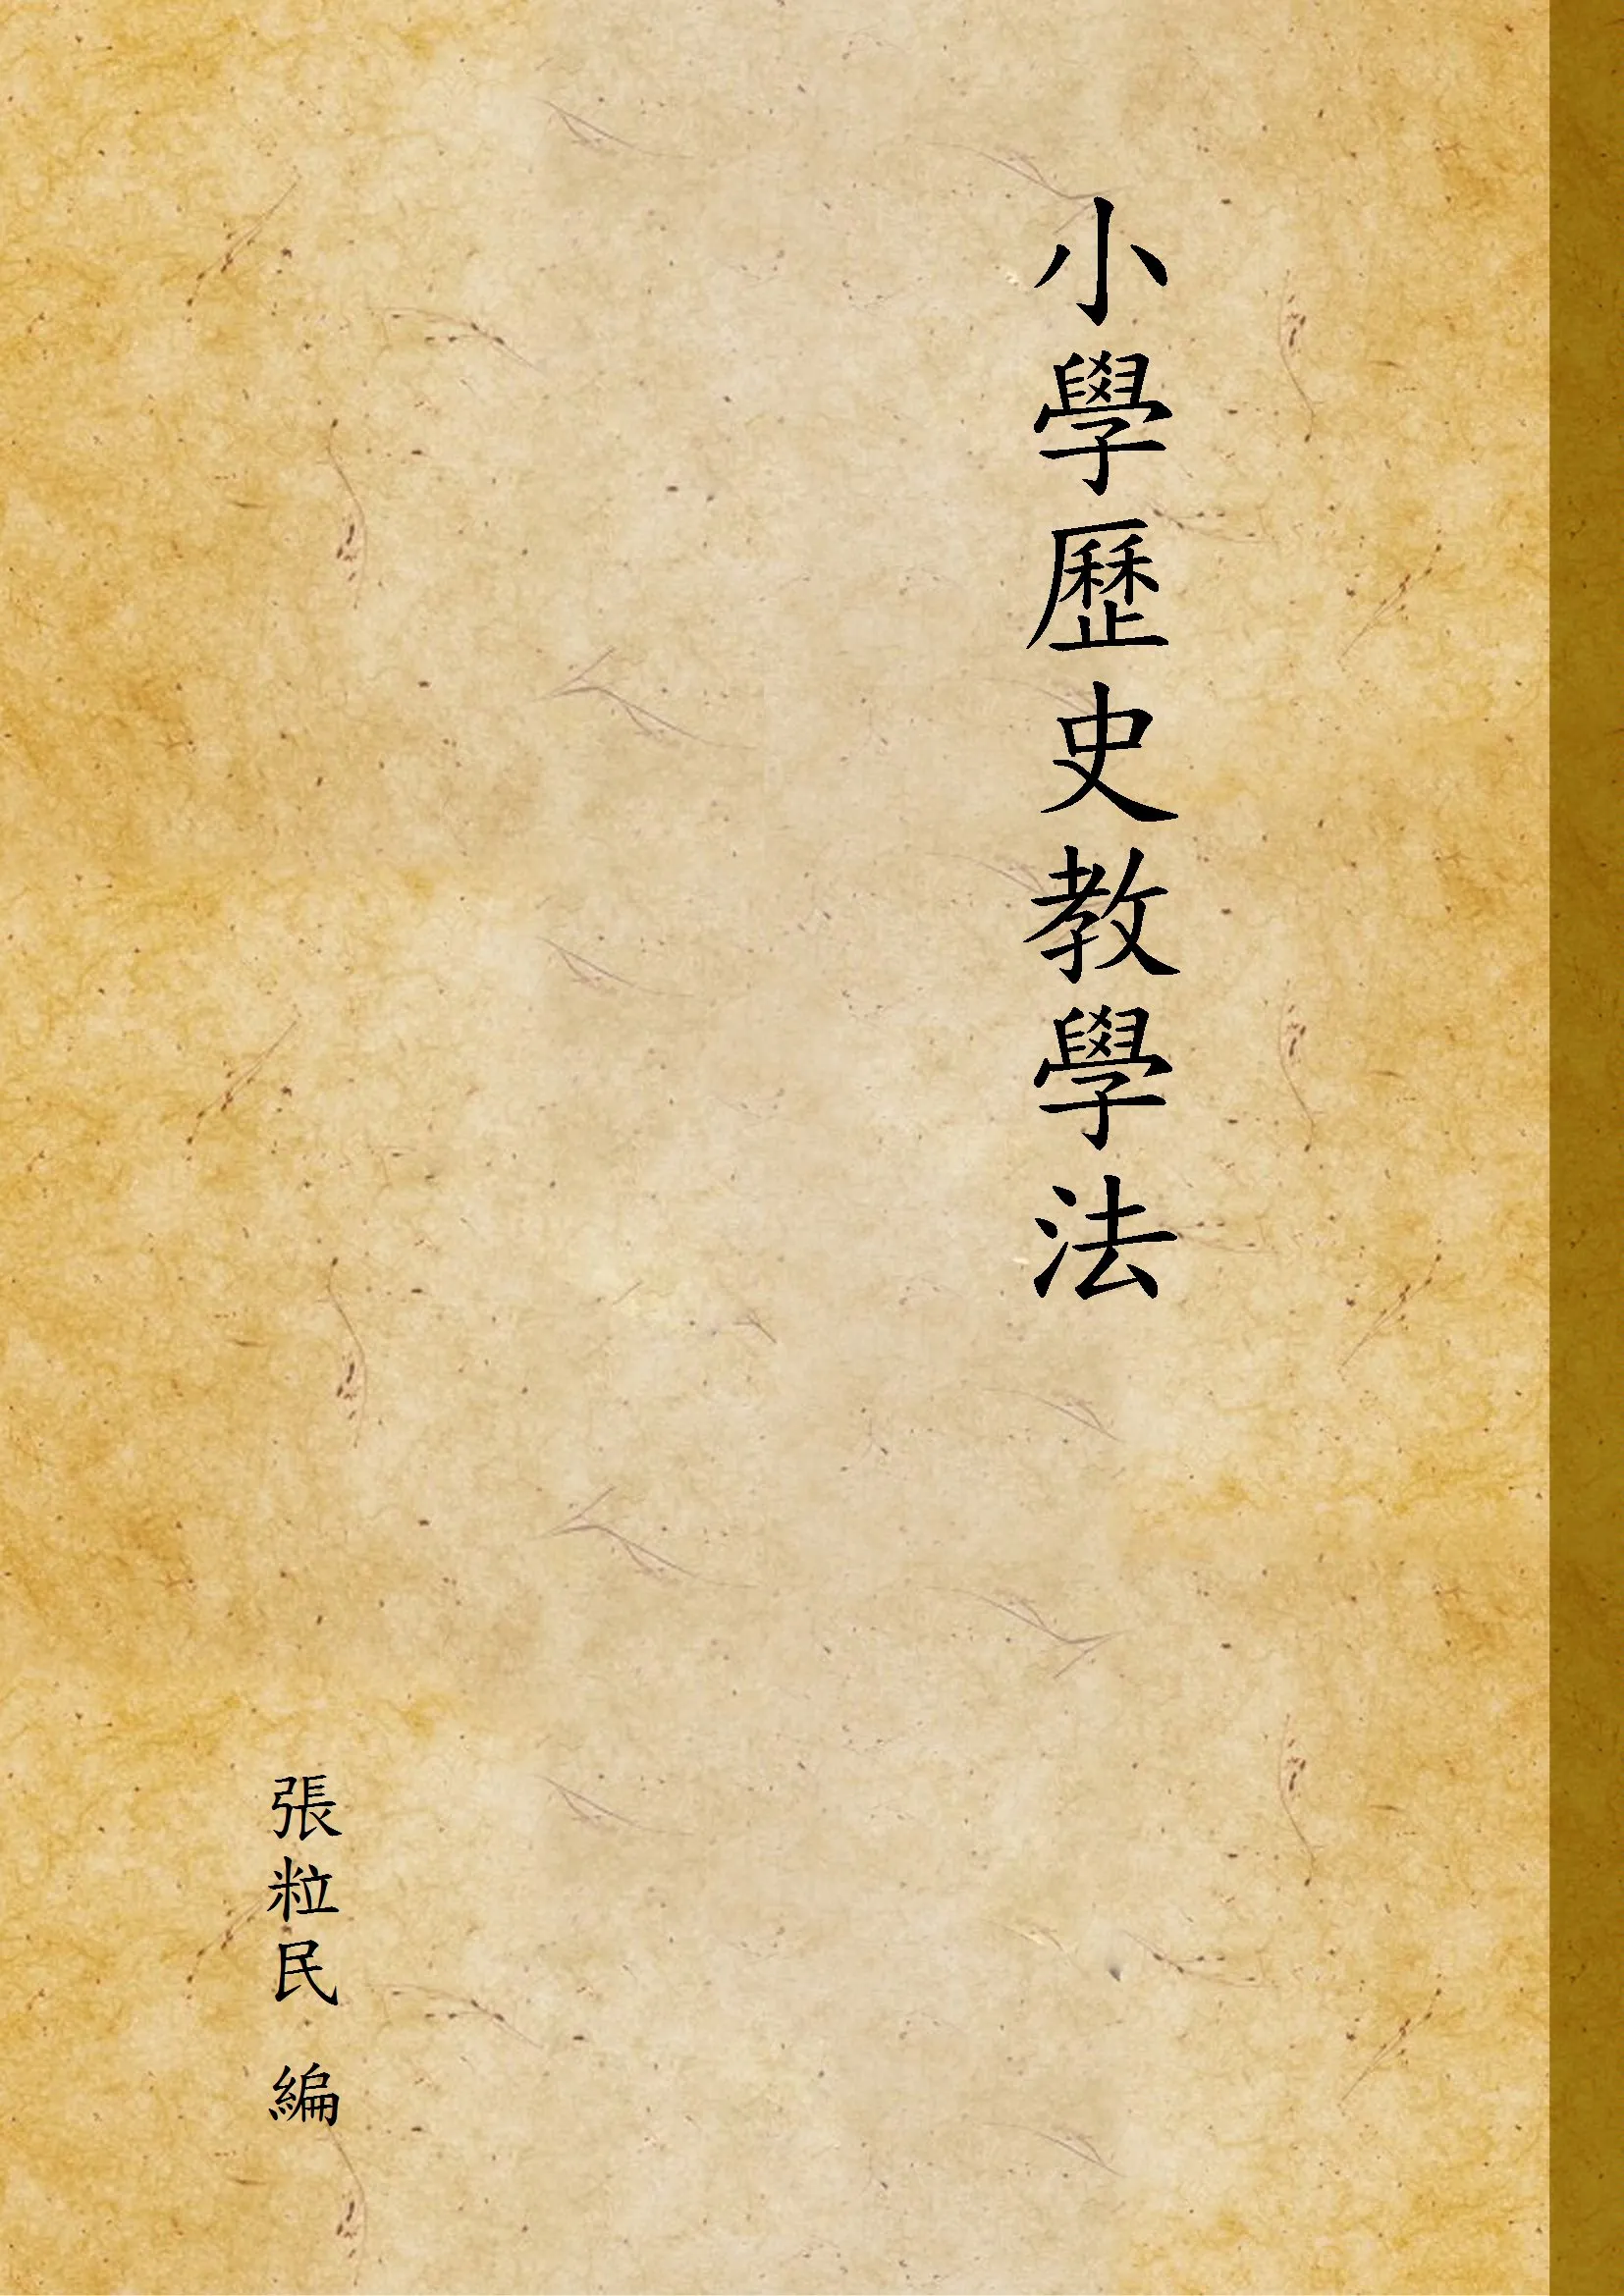 小學歷史教學法
張粒民 編